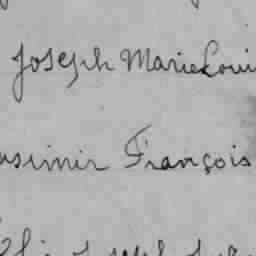 Joseph Marie Loui
asimir François